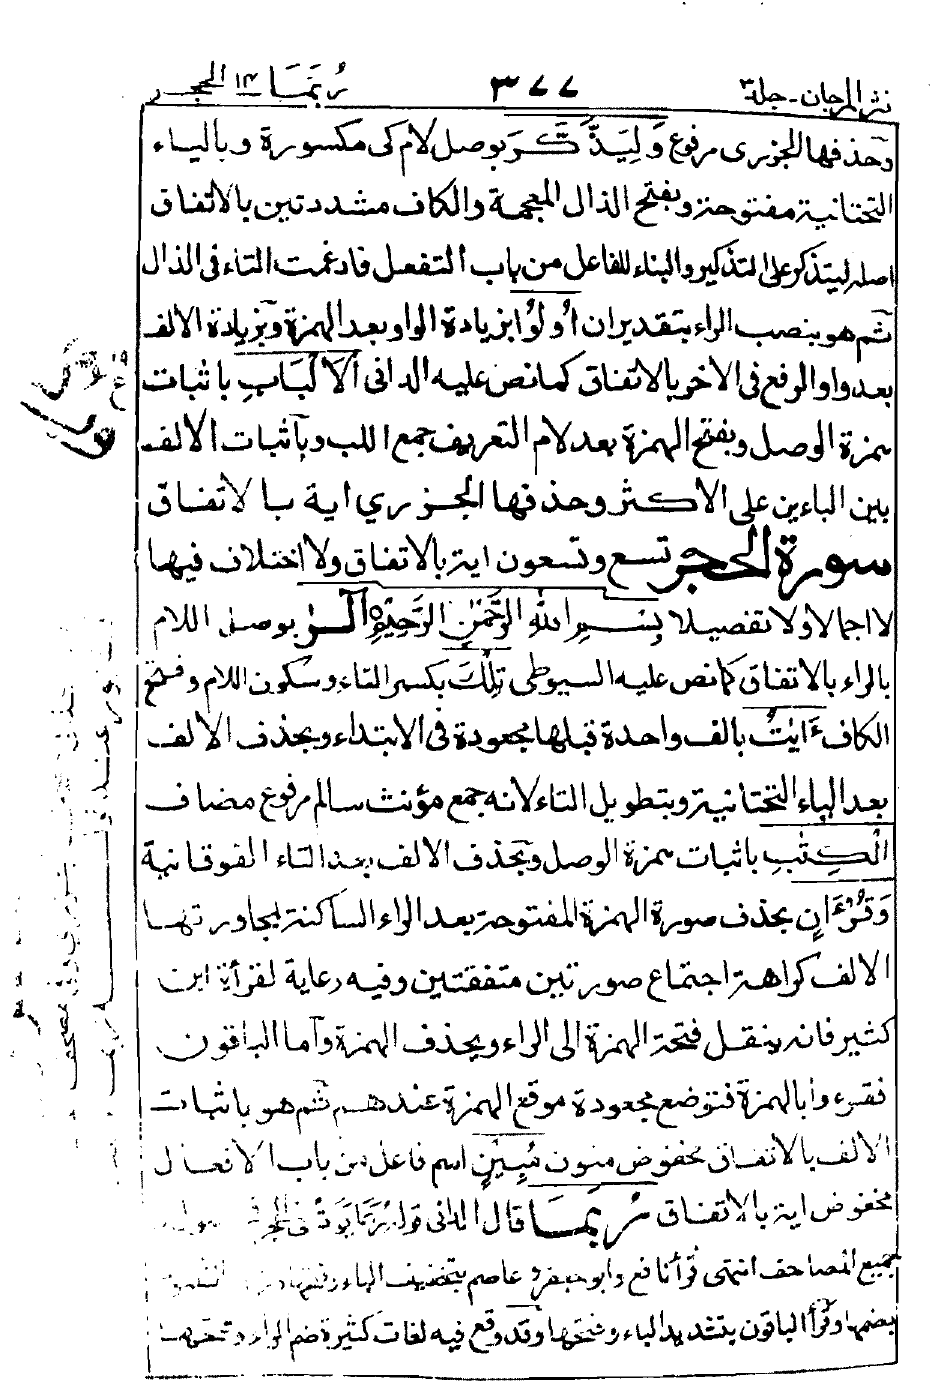 نثر المرجان - جلد ٣ ٣٧٧ رُبَمَا ١٤ الحجر
وحذفها الجزرى مرفوع وَلِيَذَّكَّرَ بوصل لام كى مكسورة وبالياء
التحتانية مفتوحة وبفتح الذال المعجمة والكاف مشددتين بالاتفاق
اصله ليتذكر على التذكير والبناء للفاعل من باب التفعل فادغمت التاء فى الذال
ثم هو بنصب الراء بتقدير ان اُولُوا بزيادة الواو بعد الهمزة وبزيادة الالف
بعد واو الرفع فى الاخر بالاتفاق كما نص عليه الدانى اَلْاَلْبَابِ باثبات
همزة الوصل وبفتح الهمزة بعد لام التعريف جمع اللب وباثبات الالف
بين الباءين على الاكثر وحذفها الجزري اية بالاتفاق
سورة الحجر تسع وتسعون اية بالاتفاق ولا اختلاف فيها
لا اجمالا ولا تفصيلا بِسْمِ اللهِ الرَّحْمٰنِ الرَّحِيْمِ الٓرٰ بوصل اللام
بالراء بالاتفاق كما نص عليه السيوطى تِلْكَ بكسر التاء وسكون اللام وفتح
الكاف ءَايٰتُ بالف واحدة قبلها مجعودة فى الابتداء وبحذف الالف
بعد الياء التحتانية وبتطويل التاء لانه جمع مؤنث سالم مرفوع مضاف
الْكِتٰبِ باثبات همزة الوصل وبحذف الالف بعد التاء الفوقانية
وَقُرْءَانٍ بحذف صورة الهمزة المفتوحة بعد الراء الساكنة لمجاورتها
الالف كراهة اجتماع صورتين متفقتين وفيه رعاية لقرأة ابن
كثير فانه ينقل فتحة الهمزة الى الراء ويحذف الهمزة وأما الباقون
فقرءوا بالهمزة فتوضع مجعودة موقع الهمزة عندهم ثم هو باثبات
الالف بالاتفاق مخفوض منون مُبِيْنٍ اسم فاعل من باب الافعال
مخفوض اية بالاتفاق رُبَمَا قال الدانى قوله رُبَمَا يَوَدُّ فى الحجر
جميع المصاحف انتهى قرأ نافع وابو جعفر و عاصم بتخفيف الباء
بضمها وقرأ الباقون بتشديد الباء وفتحها وقد وقع فيه لغات كثيرة ضم الراء وفتحها